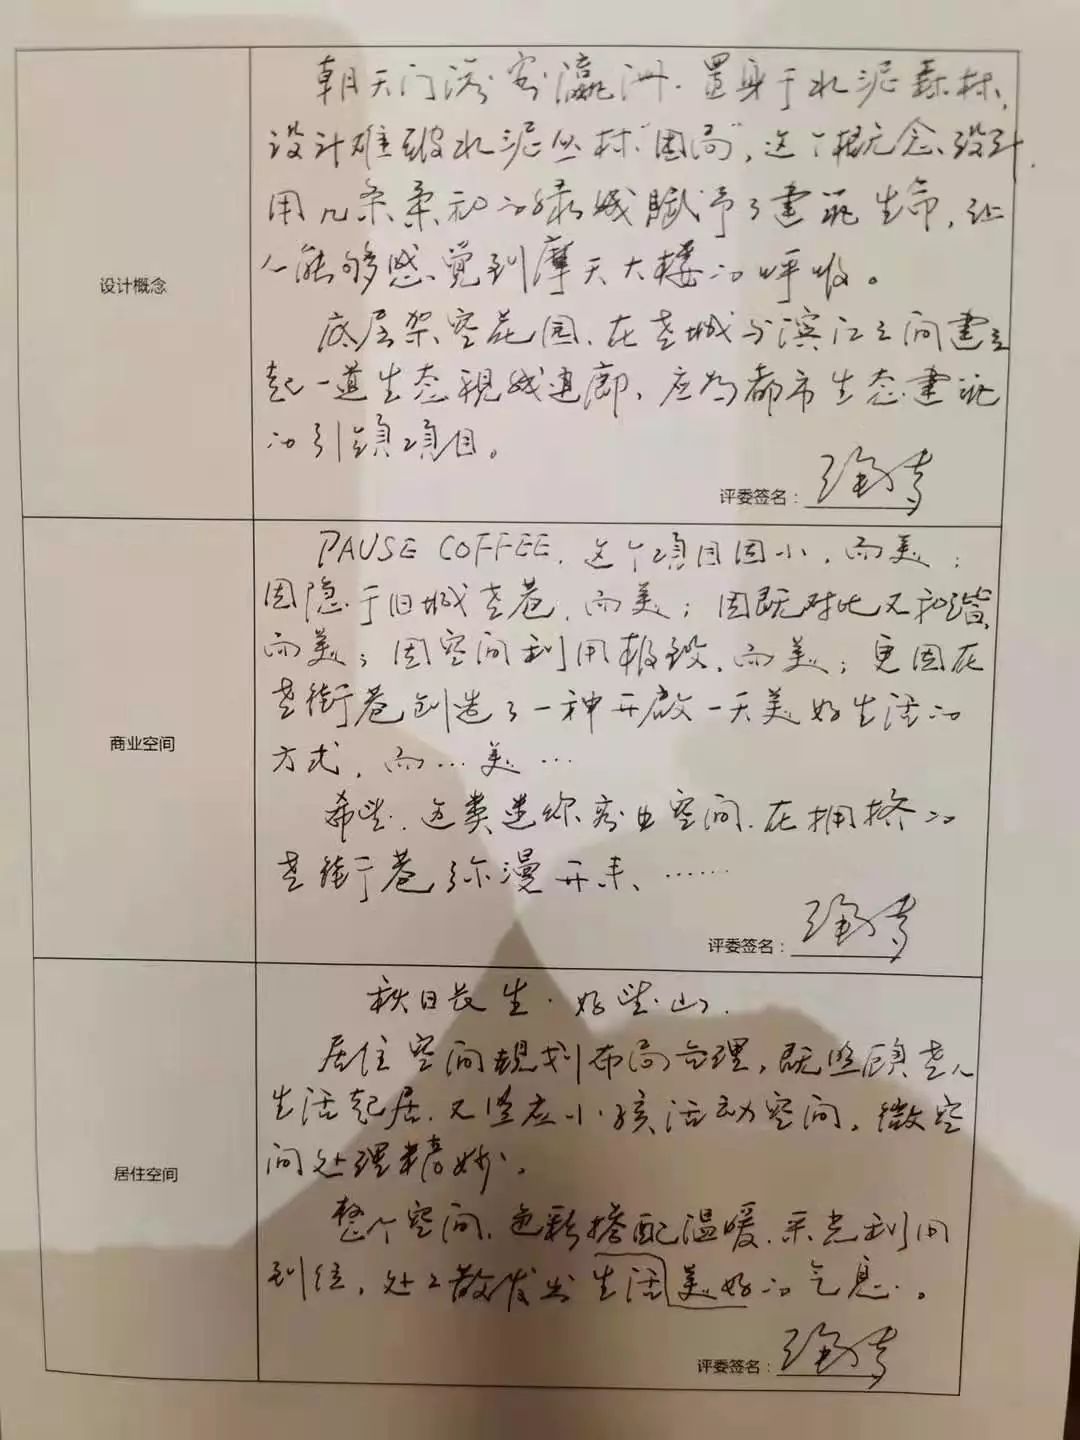 设计概念
朝天门 瀛洲.置身于水泥森林,
设计难破水泥丛林"困局",这个概念设计,
用几条柔和的绿线赋予了建筑生命,让
人能够感觉到摩天大楼的呼吸。
底层架空花园,在老城与滨江之间建立
起一道生态视线通廊,应为都市生态建筑
的引领项目。
评委签名:
商业空间
PAUSE COFFEE,这个项目因小,而美;
因隐于旧城老巷,而美;因既对比又和谐,
而美;因空间利用极致,而美;更因在
老街巷创造了一种开启一天美好生活的
方式,而…美…
希望,这类迷你商业空间,在拥挤的
老街巷弥漫开来、……
评委签名:
居住空间
秋日长生·好望山,
居住空间规划布局合理,既照顾老人
生活起居,又兼应小孩活动空间,微空
间处理精妙。
整个空间,色彩搭配温暖,采光利用
到位,处处散发出生活美好的气息.。
评委签名: